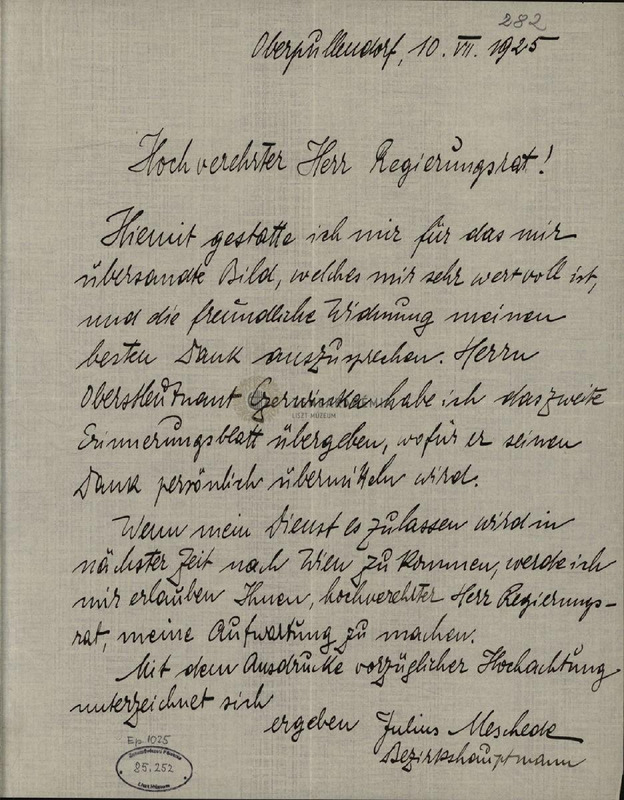 282
Oberpullendorf, 10. VII. 1925
Hochverehrter Herr Regierungsrat!
Hiemit gestatte ich mir für das mir
übersandte Bild, welches mir sehr wertvoll ist,
und die freundliche Widmung meinen
besten Dank auszusprechen. Herrn
Oberstleutnant Czerwinka habe ich das zweite
LISZT MÚZEUM
Erinnerungsblatt übergeben, wofür er seinen
Dank persönlich übermitteln wird.
Wenn mein Dienst es zulassen wird in
nächster Zeit nach Wien zu kommen, werde ich
mir erlauben Ihnen, hochverehrter Herr Regierungs-
rat, meine Aufwartung zu machen.
Mit dem Ausdrucke vorzüglicher Hochachtung
unterzeichnet sich
ergeben Julius Meschede
Bezirkshauptmann
Ep. 1025
85.252
Liszt Múzeum